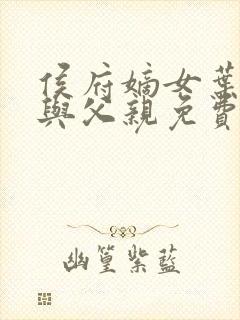 侯府嫡女葉
與父親免費
幽篁紫藍